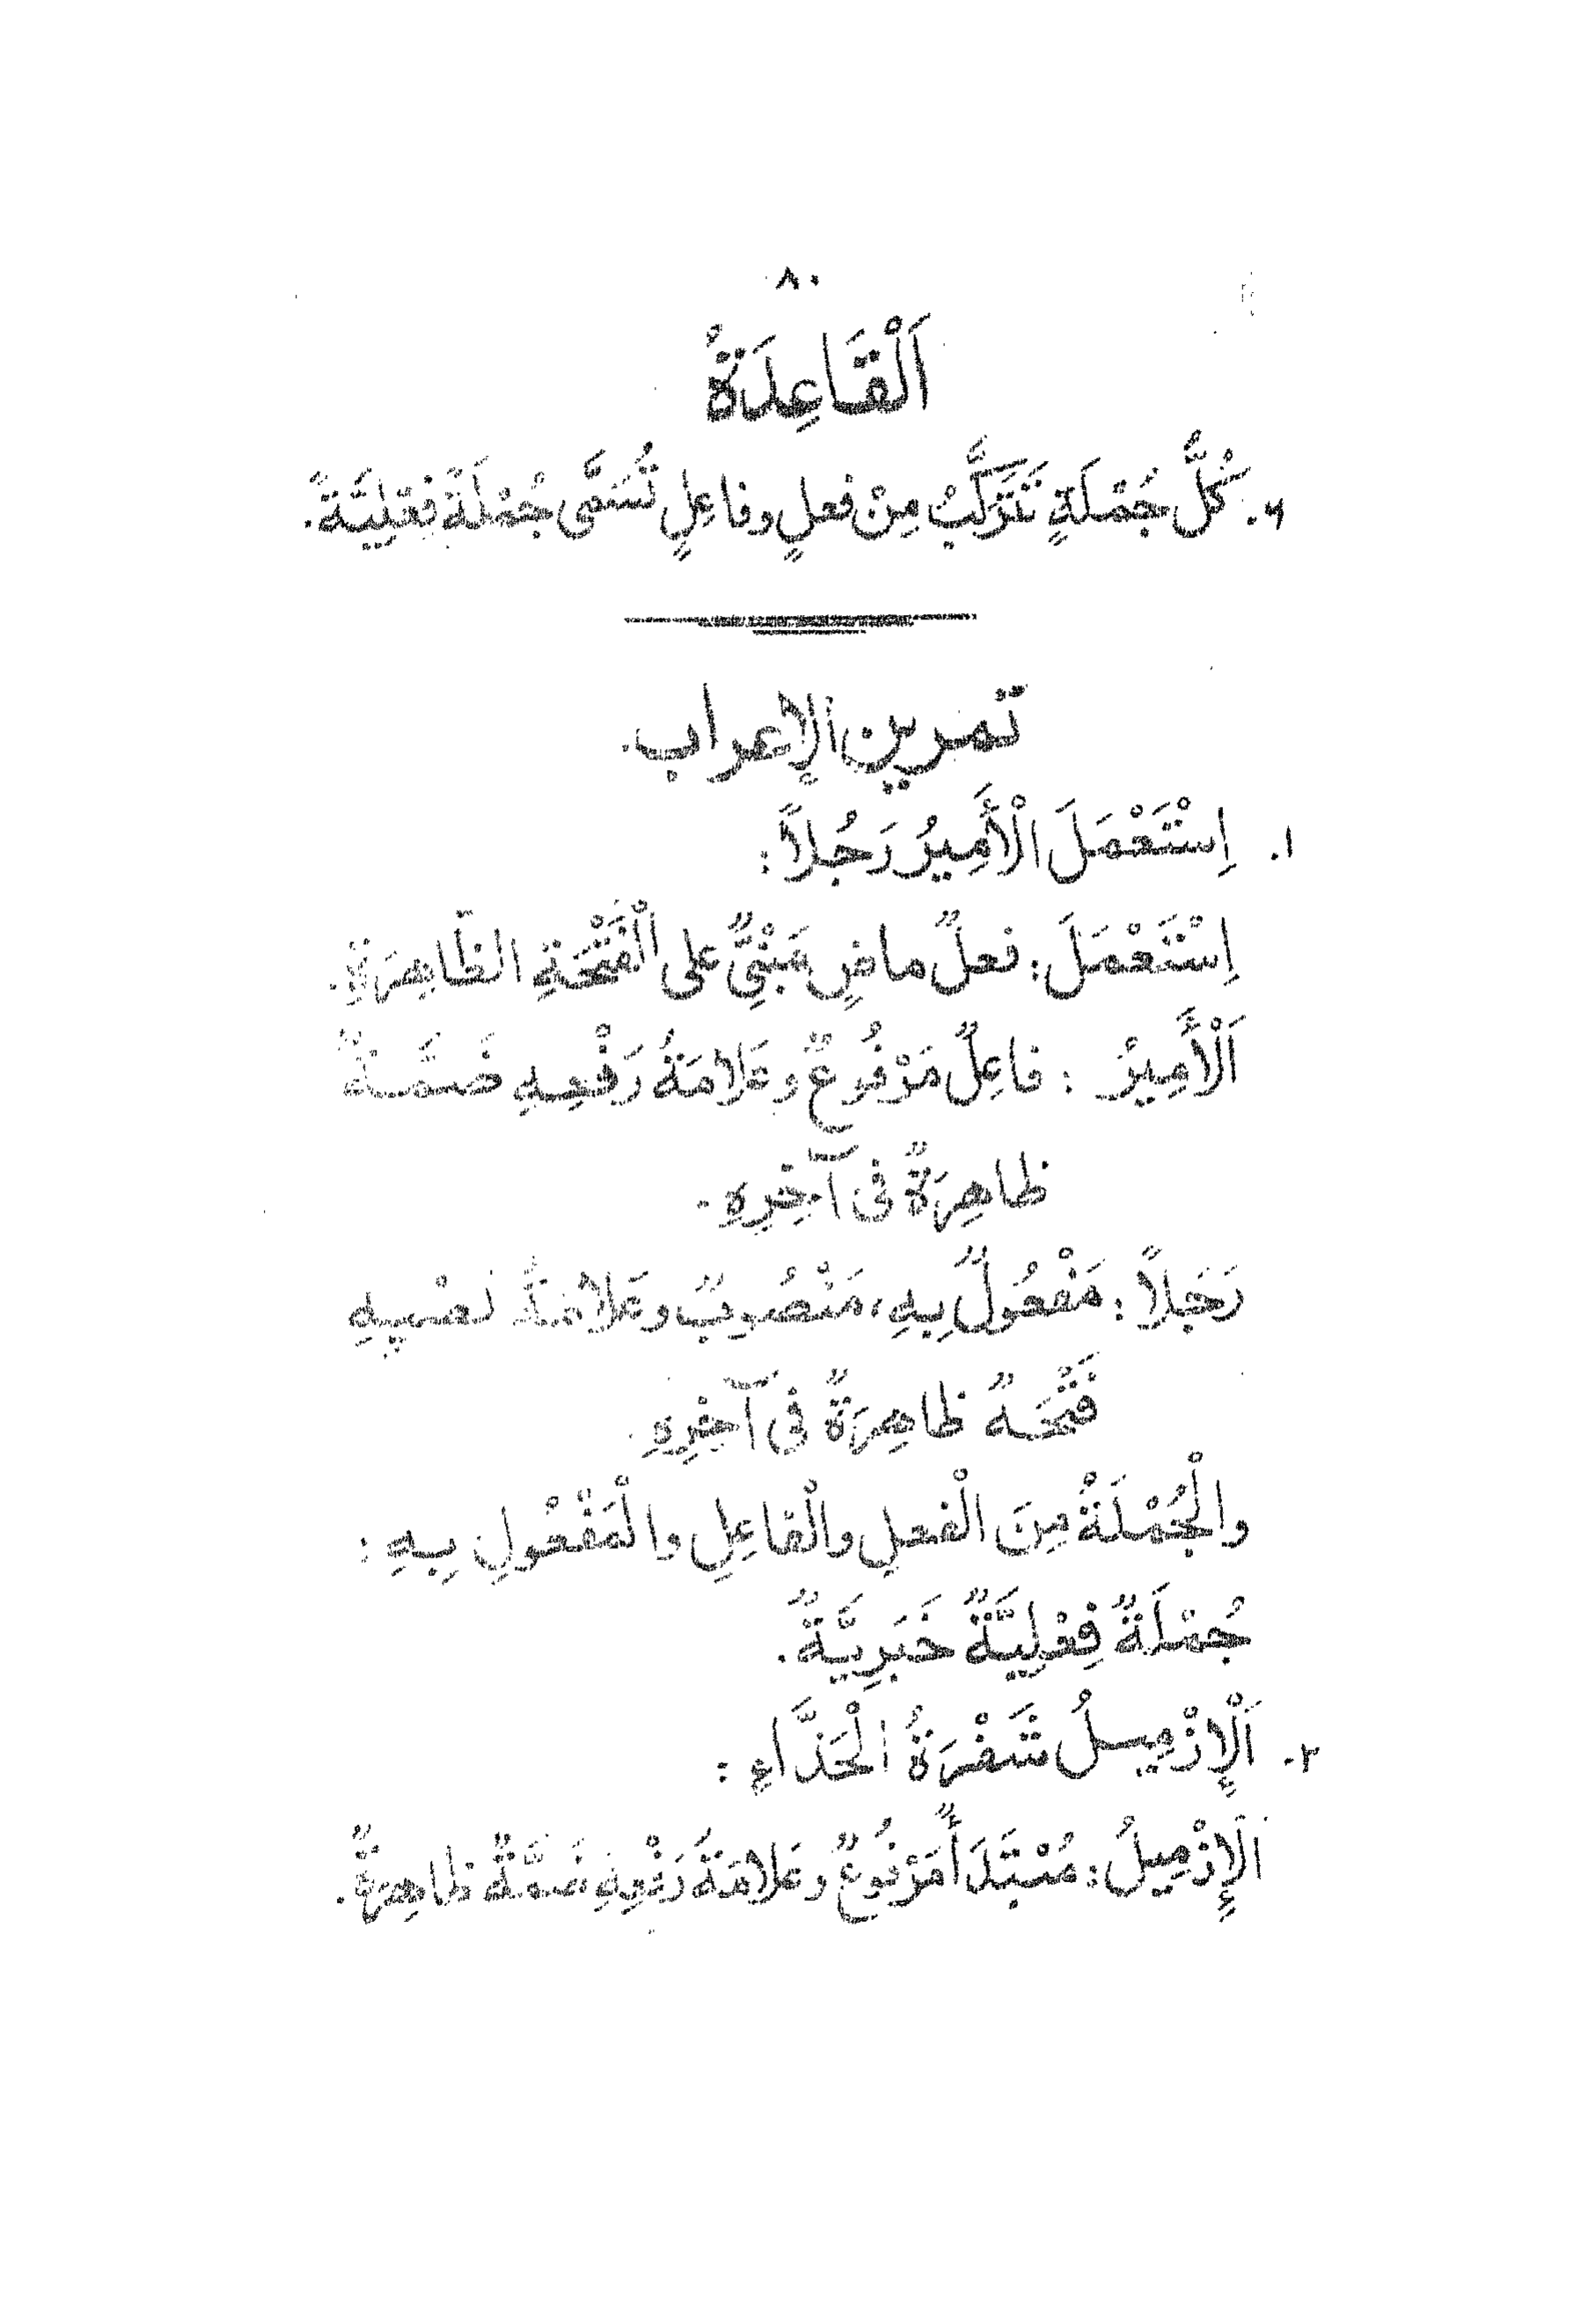 ٨٠
اَلْقَاعِدَةُ
٧. كُلُّ جُمْلَةٍ تَتَرَكَّبُ مِنْ فعلٍ وفاعِلٍ تُسَمَّى جُمْلَةً فعْلِيَّةً.
تمرين الإعراب.
١. اِسْتَعْمَلَ الْأَمِيرُ رَجُلاً:
اِسْتَعْمَلَ: فعلٌ ماضٍ مَبْنِيٌّ على الْفَتْحَةِ الظَّاهِرَةِ.
اَلْأَمِيرُ : فاعِلٌ مَرْفُوعٌ وعَلامَةُ رَفْعِهِ ضَمَّةٌ
ظاهِرَةٌ فى آخِرِهِ.
رَجَلاً: مَفْعُولٌ بِهِ، مَنْصُوبٌ وعَلامَةُ نصْبِهِ
فَتْحَةٌ ظاهِرَةٌ فى آخِرِهِ.
والْجُمْلَةُ مِنَ الْفعلِ والْفاعِلِ والْمَفْعُولِ بِهِ:
جُمْلَةٌ فِعْلِيَّةٌ خَبَرِيَّةٌ.
٢. اَلْإِزْمِيلُ شَفْرَةُ الْحَذَّاءِ:
الْإِزْمِيلُ: مُبْتَدَأٌ مَرْفُوعٌ وعَلامَةُ رَفْعِهِ ضَمَّةٌ ظاهِرَةٌ.